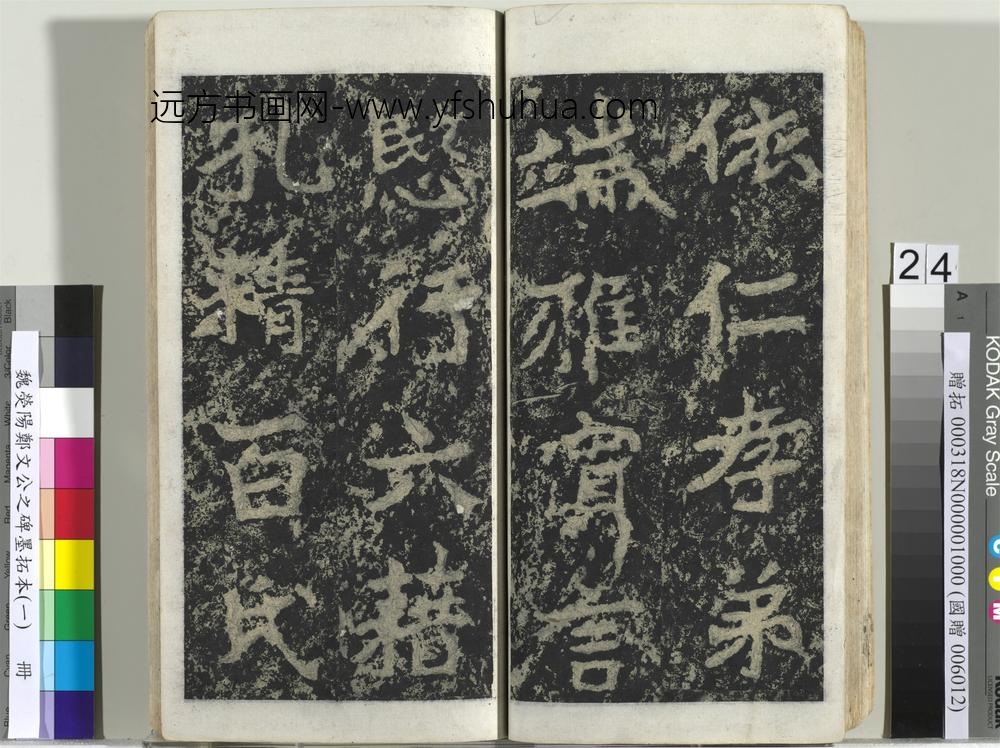 远方书画网-www.yfshuhua.com
依仁孝弟
端雅寡言
愍行六藉
孔精百氏
24
魏滎陽鄭文公之碑墨拓本(一) 冊
贈拓 000318N000001000 (國贈 006012)
KODAK Gray Scale
A 1
C
Y
M
Black
3/Color
White
Magenta
Red
Yellow
Green
Cyan
Blue